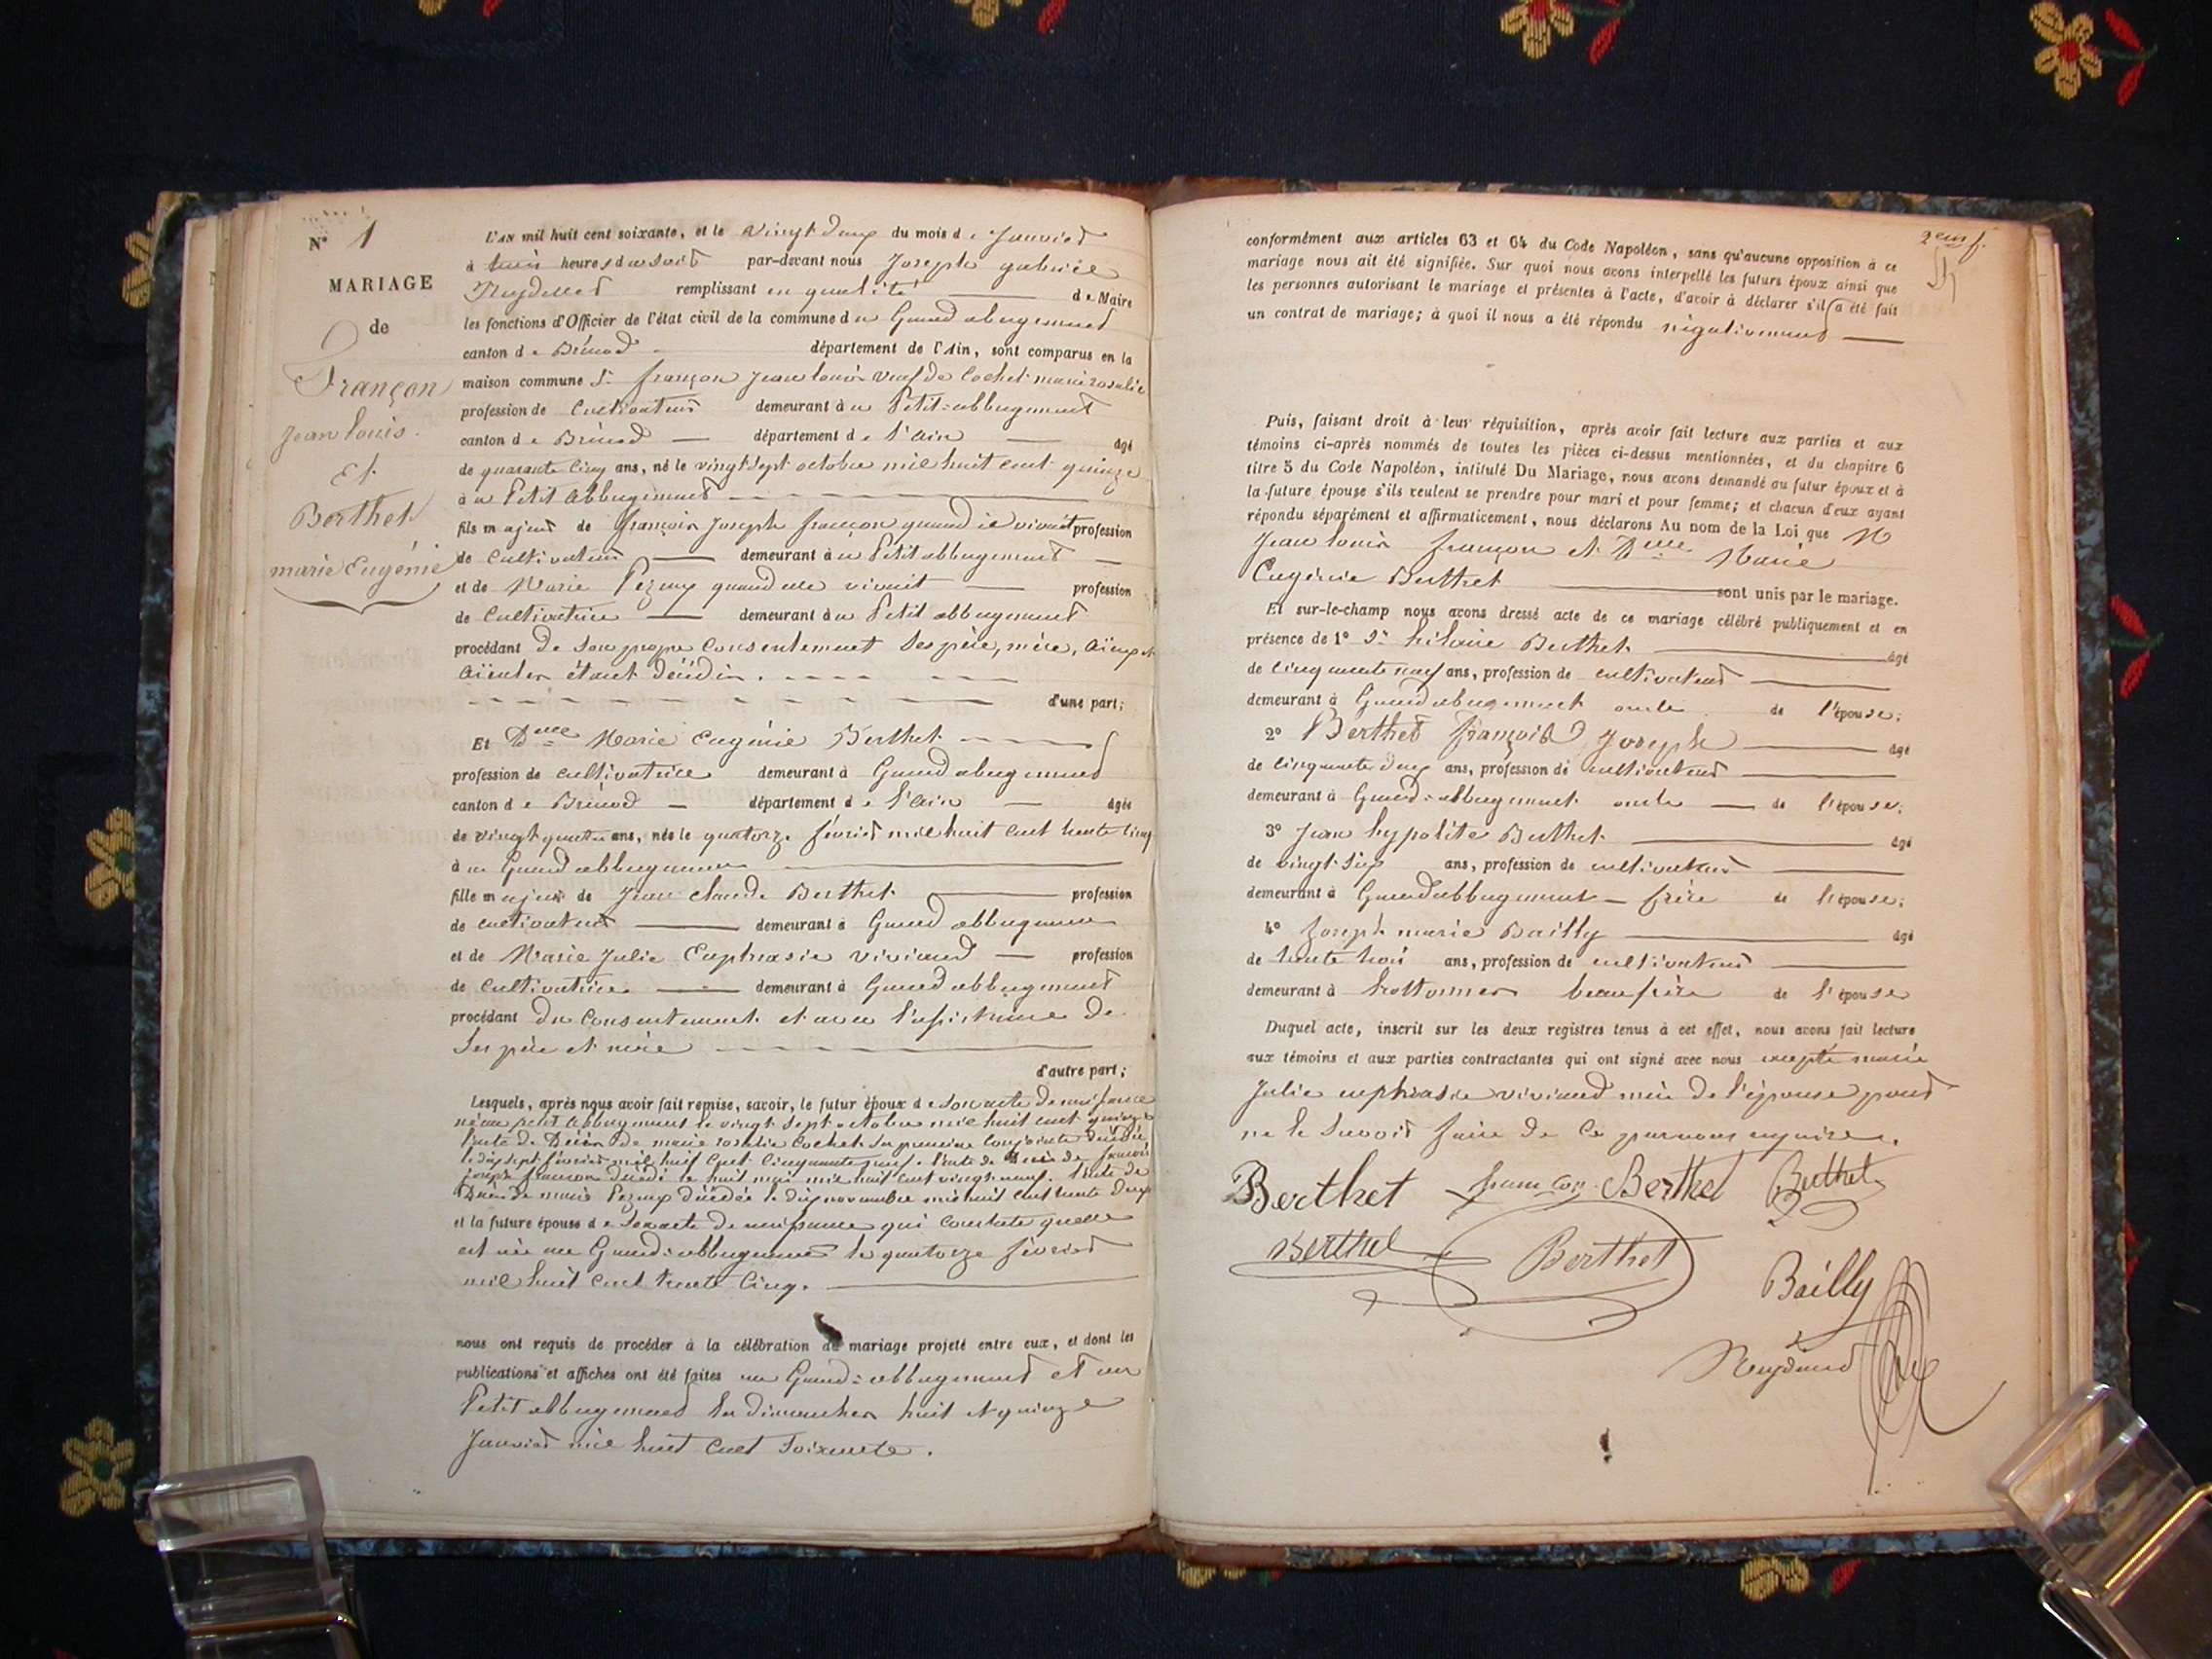 N° 1
MARIAGE
de
Françon
jean louis
et
Berthet
marie Eugénie
L'AN mil huit cent soixante, et le vingt deux du mois de Janvier
à trois heures du soir par-devant nous Joseph gabriel
remplissant en qualité de Maire
les fonctions d'Officier de l'état civil de la commune du Grand abergement
canton de Brénod département de l'Ain, sont comparus en la
maison commune Sr françon jean louis veuf de Cochet marie rosalie
profession de Cultivateur demeurant à u Petit-abbergement
canton de Brénod département de l'ain âgé
de quarante cinq ans, né le vingt sept octobre mil huit cent quinze
à u Petit Abbergement
fils majeur de françois Joseph françon quand il vivait profession
de Cultivateur demeurant à u Petit abbergement
et de Marie quand elle vivait profession
de Cultivatrice demeurant à u Petit abbergement
procédant de son propre consentement ses père, mère, aïeux et
aïeules étant décédés.
d'une part;
Et Dlle Marie Eugénie Berthet
profession de cultivatrice demeurant à Grand abergement
canton de Brénod département de l'ain âgée
de vingt quatre ans, née le quatorze février mil huit cent trente cinq
à u Grand abbergement
fille majeure de Jean claude Berthet profession
de cultivateur demeurant à Grand abbergement
et de Marie Julie Euphrasie viviand profession
de Cultivatrice demeurant à Grand abbergement
procédant du Consentement et avec l'assistance de
Ses père et mère
d'autre part;
Lesquels, après nous avoir fait remise, savoir, le futur époux de son acte de naissance
né au petit Abbergement le vingt sept octobre mil huit cent quinze
l'acte de Décès de marie rosalie Cochet sa première conjointe décédée
le dix sept février mil huit cent cinquante neuf. l'acte de décès de françois
joseph françon décédé le huit mai mil huit cent vingt neuf. l'acte de
Décès de marie décédée le dix novembre mil huit cent trente deux
et la future épouse de son acte de naissance qui constate quelle
est née au Grand-abbergement le quatorze février
mil huit cent trente cinq.
nous ont requis de procéder à la célébration du mariage projeté entre eux, et dont les
publications et affiches ont été faites au Grand-abbergement et au
Petit abbergement les dimanches huit et quinze
Janvier mil huit cent soixante.
conformément aux articles 63 et 64 du Code Napoléon, sans qu'aucune opposition à ce
mariage nous ait été signifiée. Sur quoi nous avons interpellé les futurs époux ainsi que
les personnes autorisant le mariage et présentes à l'acte, d'avoir à déclarer s'il a été fait
un contrat de mariage; à quoi il nous a été répondu négativement
Puis, faisant droit à leur réquisition, après avoir fait lecture aux parties et aux
témoins ci-après nommés de toutes les pièces ci-dessus mentionnées, et du chapitre 6
titre 5 du Code Napoléon, intitulé Du Mariage, nous avons demandé au futur époux et à
la future épouse s'ils veulent se prendre pour mari et pour femme; et chacun d'eux ayant
répondu séparément et affirmativement, nous déclarons Au nom de la Loi que M
Jean louis françon et Dlle Marie
Eugénie Berthet sont unis par le mariage.
Et sur-le-champ nous avons dressé acte de ce mariage célébré publiquement et en
présence de 1° Sr hilaire Berthet âgé
de cinquante neuf ans, profession de cultivateur
demeurant à Grand abergement oncle de l'épouse;
2° Berthet françois Joseph âgé
de cinquante deux ans, profession de cultivateur
demeurant à Grand-abbergement oncle de l'épouse;
3° Jean hypolite Berthet âgé
de vingt six ans, profession de cultivateur
demeurant à Grand abbergement frère de l'épouse;
4° Joseph marie Bailly âgé
de trente trois ans, profession de cultivateur
demeurant à hottonnes beau frère de l'épouse
Duquel acte, inscrit sur les deux registres tenus à cet effet, nous avons fait lecture
aux témoins et aux parties contractantes qui ont signé avec nous excepté marie
Julie euphrasie viviand mère de l'épouse pour
ne le savoir faire de ce par nous enquise.
Berthet françon Berthet Berthet
Berthet Berthet
Bailly